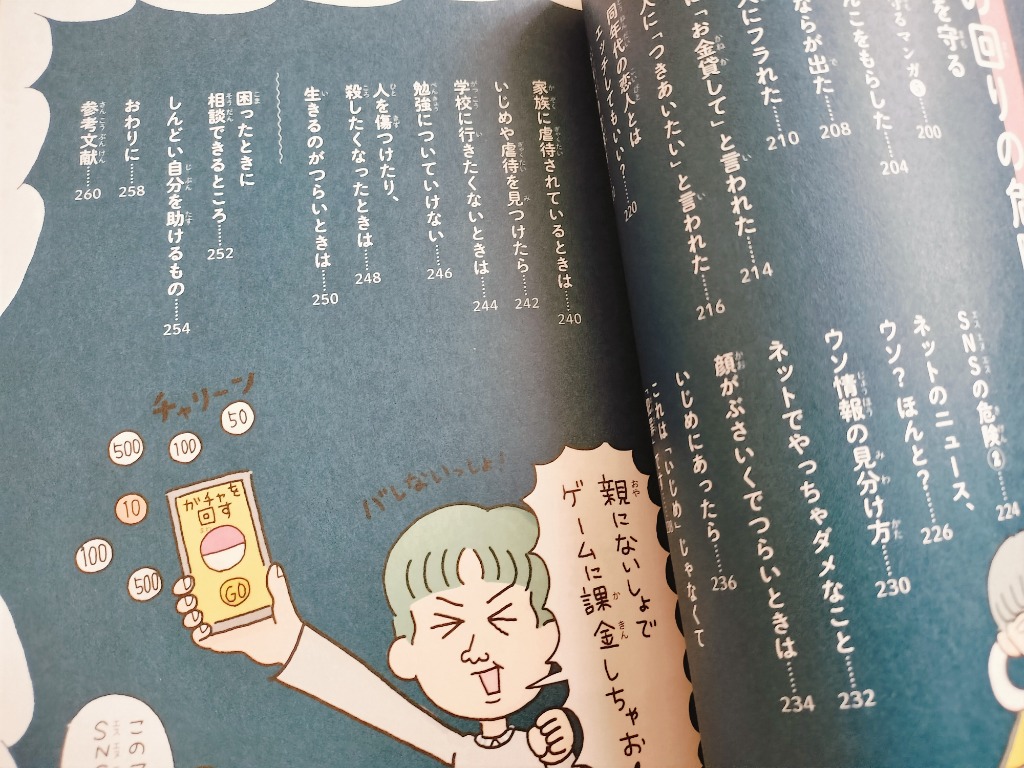 の回りの危
を守る
守るマンガ⑥……200
んこをもらした……204
ならが出た……208
人にフラれた……210
に「お金貸して」と言われた……214
人に「つきあいたい」と言われた……216
同年代の恋人とは
エッチしてもいい?……220
SNSの危険②……224
ネットのニュース、
ウン?ほんと?……226
ウン情報の見分け方……230
ネットでやっちゃダメなこと……232
顔がぶさいくでつらいときは……234
いじめにあったら……236
これは「いじめ」じゃなくて
家族に虐待されているときは……240
いじめや虐待を見つけたら……242
学校に行きたくないときは……244
勉強についていけない……246
人を傷つけたり、
殺したくなったときは……248
生きるのがつらいときは……250
困ったときに
相談できるところ……252
しんどい自分を助けるもの……254
おわりに……258
参考文献……260
親にないしょで
ゲームに課金しちゃお
バレないっしょ!
チャリーン
50
100
500
10
100
500
ガチャを
回す
GO
この
SN